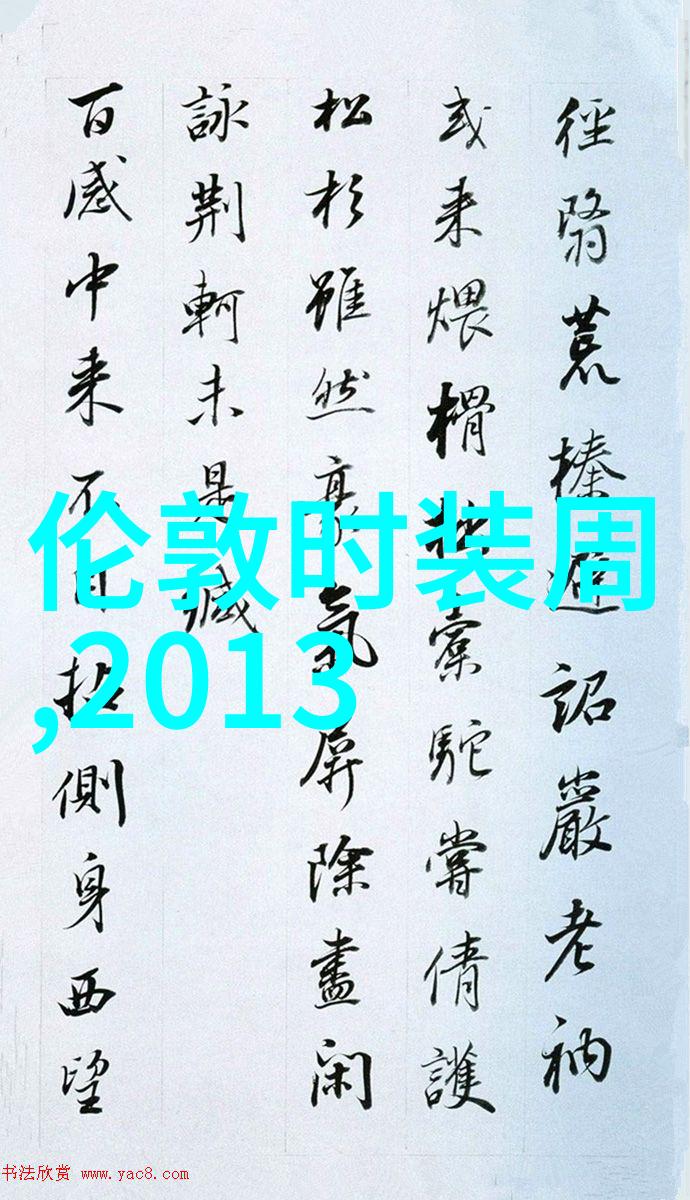 徑翳荒榛詔巖老衲
或来煨榾柮橐駝嘗倩護
松杉雖然豪氣屏除盡閑
詠荆軻未是减
百感中来不自側身西望
伦敦时装周
,2013
书法欣赏 www.yac8.com